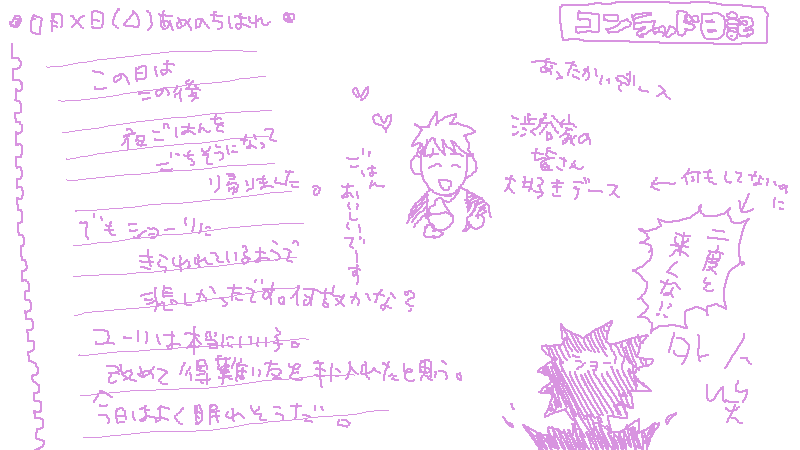 ○月×日(△)あめのちはれ
コンラッド日記
この日は
この後
夜ごはんを
ごちそうになって
帰りました。
でもショーリに
きらわれているようで
悲しかったです。何故かな?
ユーリは本当にいい子。
改めて得難い友を手に入れたと思う。
今日はよく眠れそうだ。
ごはん
おいしいでーす
あったかいでース
渋谷家の
皆さん
大好きデース
←何もしてないのに
二度と
来くな!!
ショー